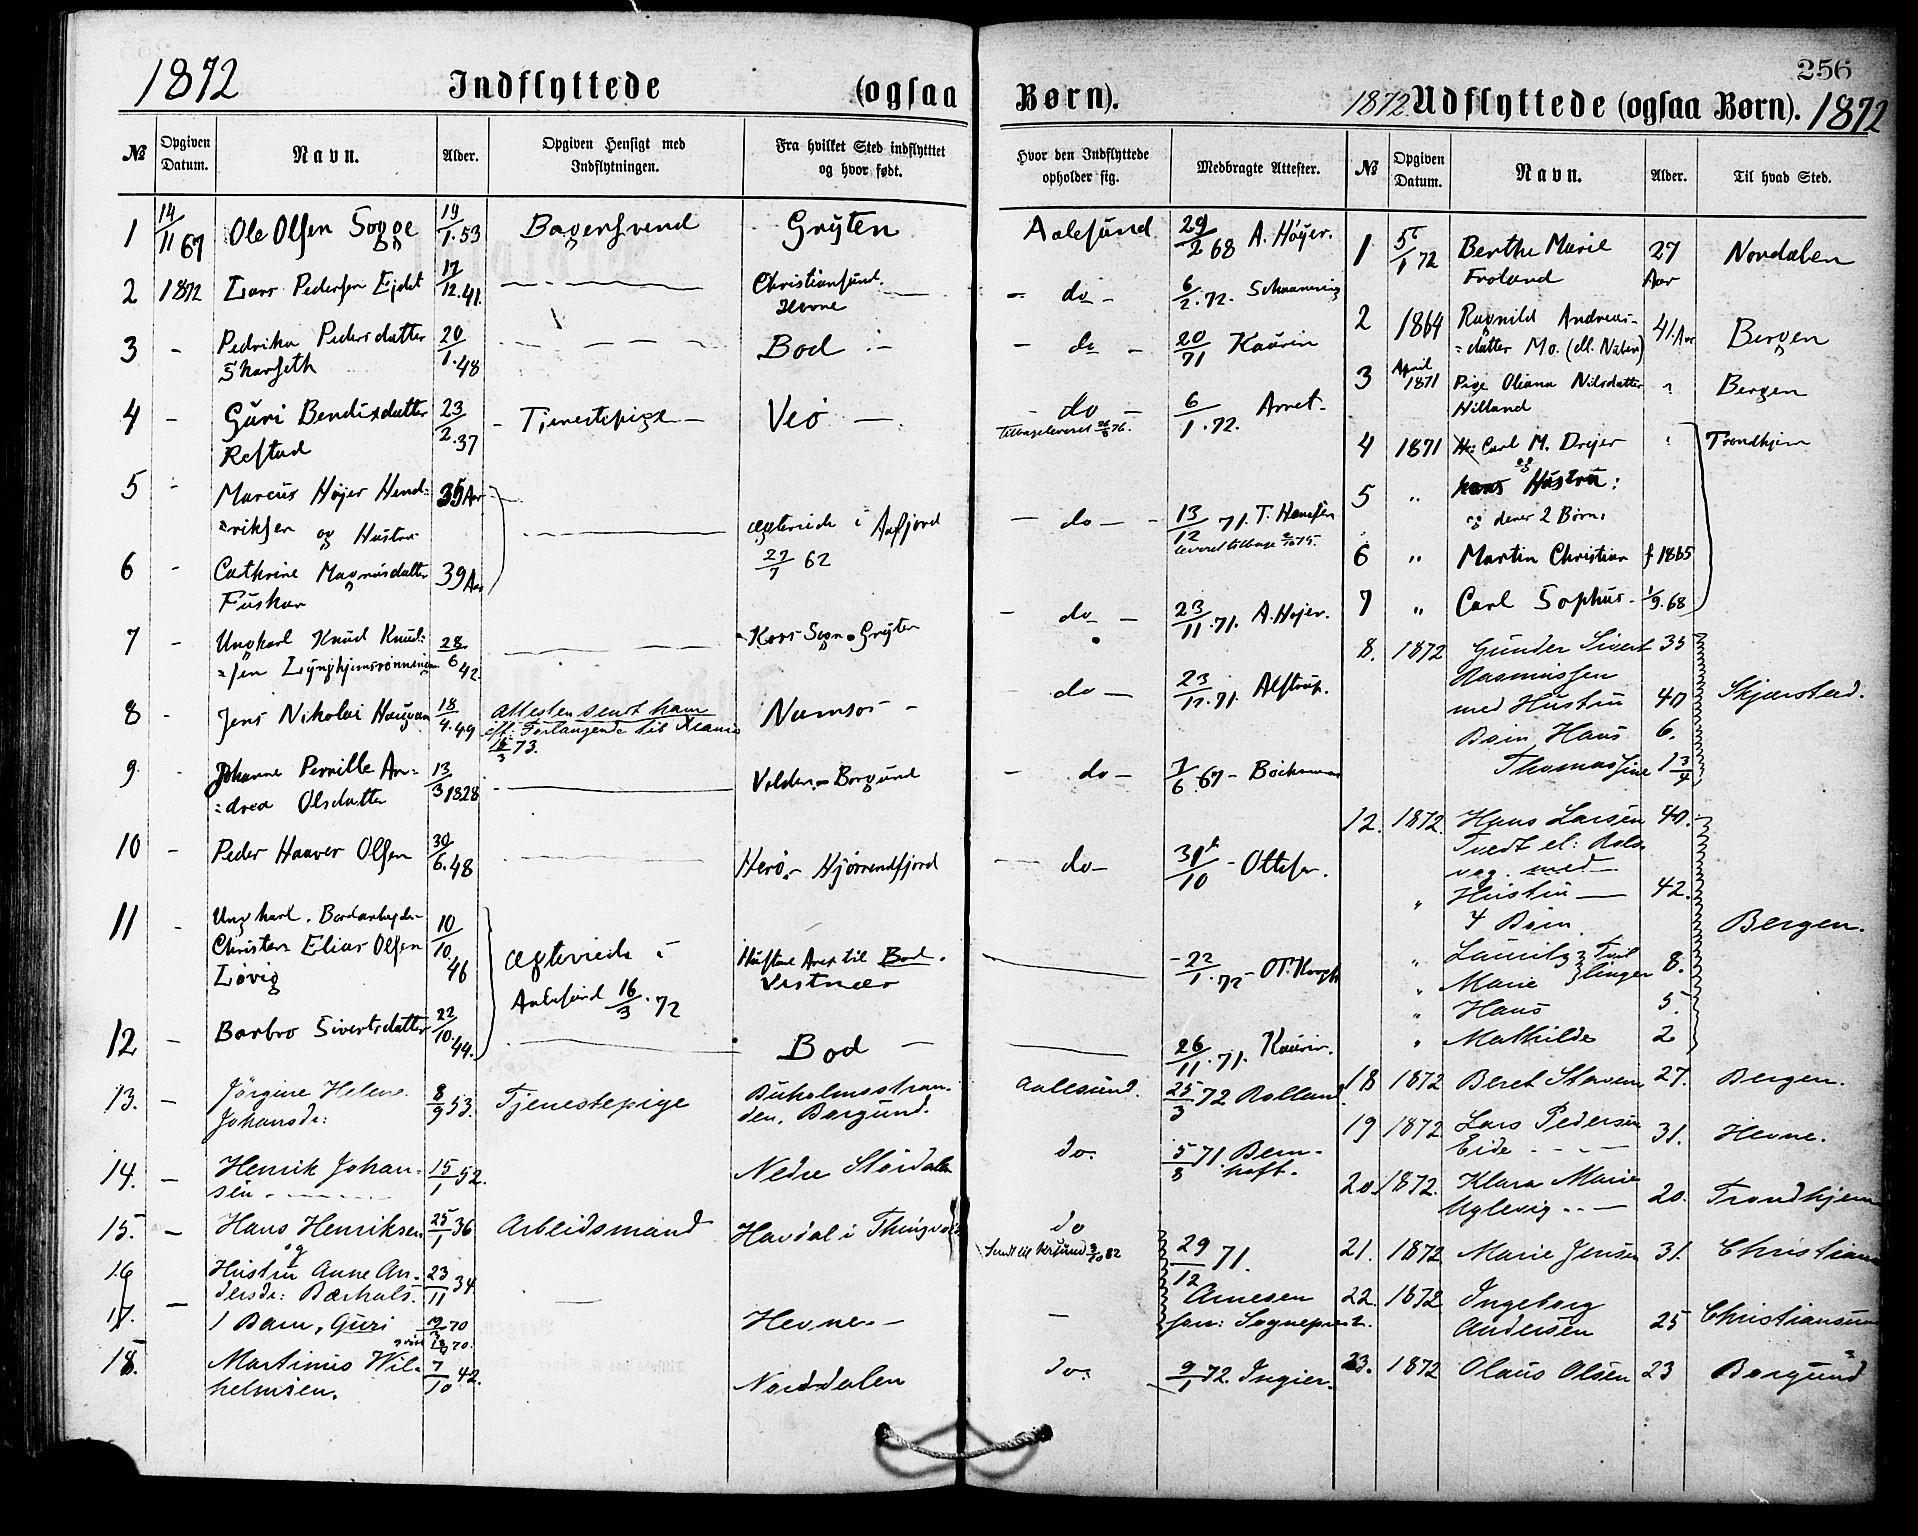 1872 Indflyttede (ogsaa Børn). 1872 Udflyttede (ogsaa Børn). 1872
256
№ Opgiven Datum. Navn. Alder. Opgiven Hensigt med Indflytningen. Fra hvilket Sted indflyttet og hvor født. Hvor den Indflyttede opholder sig. Medbragte Attester.
1 14/11 67 Ole Olsen Sogge 19/1.53 Bagersvend Gryten Aalesund 29/2 68 A. Høyer.
2 1872 Lars Pedersen Ejdet 17/12.41. Christiansund. Hevne — do — 6/2.72.
3 - Pedrika Pedersdatter 20/1.48 Bod — do — 20/71 Kaurin
Skarseth
4 - Guri Bendixdatter 23/2.37 Tjenestepige — Veø — do — 6/1.72. Arnet.
Restad
5 - Marcus Højer Hend= 35 Aar ægteviede i Aafjord — do — 13/12 71. T. Hansen
=riksen og Hustru 27/7 62 leveret tilbage
6 - Cathrine Magnusdatter 39 Aar
Fuskar
7 - Ungkarl Knud Knud= 28/6 42. Kors Sogn Gryten — do — 23/11.71. A. Højer.
=sen Lynghjemsrønningen
8 - Jens Nikolai Haugan 18/4.49 Attesten sendt ham Namsos — do — 23/11.71. Alstrup.
eft: Forlangende til
73.
9. - Johanne Pernille An= 13/3 1828 Volden - Borgund — do — 7/6.67 -
=drea Olsdatter
10 - Peder Haaver Olsen 30/6.48 Herø - Hjørrendfjord — do — 31/10 - Ottesen.
11 - Ungkarl. Bordarbejder 10/10.46 ægteviede i Hustru Aret til Bod.
Christen Elias Olsen Aalesund 16/3.72 Vestnæs 22/1.72 -
Løvig
12 - Barbro Sivertsdatter 22/10.44. Bod — 26/11.71. Kaurin.
13. - Jörgine Helene 8/9 53. Tjenestepige Buholmsstran= Aalesund. 25/3 72 Rolland
Johansdr: den, Borgund.
14. - Henrik Johan= 15/1 52. Nedre Stördalen do. 5/8 71. Bern=
sen. hoft.
15. - Hans Henriksen 25/1 36 Arbeidsmand Havdal i Thingvold do 29/12 71.
og
16 Hustru Anne An= 23/11 34 Arnesen
dersdr: Bærhals.
17. - 1 Barn, Guri 70 Hevne. - — Sogneprest.
18. Martinus Wil= 7/10 42. Norddalen do. 9/1 72. Ingier.
helmsen.
№ Opgiven Datum. Navn. Alder. Til hvad Sted.
1 5/1 72 Berthe Marie 27 Aar Nordalen
Froland
2 1864 Ragnild Andreas= 41. Aar Bergen
=datter Mo.
3 April 1871 Pige Oliana Nilsdatter " Bergen
Hilland
4 1871 Carl M. Drejer " Trondhjem
5 " og hans Hustru:
og deres 2 Børn.
6 " Martin Christian f 1865
7 " Carl Sophus - 1/9.68
8. 1872 Gunder Sivert 35
Rasmussen Skjærstad.
med Hustru 40
Børn Hans 6.
Thomassine 1 3/4
12. 1872. Hans Larsen 40.
Tvedt el: Aals=
vog. med —
" Hustru — 42.
4 Børn. Bergen.
" Lauritz } Tvil
" Marie } linger 8.
" Hans 5.
" Mathilde 2
18 1872 Beret Staven 27. Bergen.
19 1872 Lars Pedersen 31. Hevne.
Eide - - -
20. 1872. Klara Marie 20. Trondhjem
Uglevig - - —
21. 1872 Marie Jensen 31.
22. 1872 Ingeborg
Andersen 25 Christiansund
23. 1872 Olaus Olsen 23 Borgund